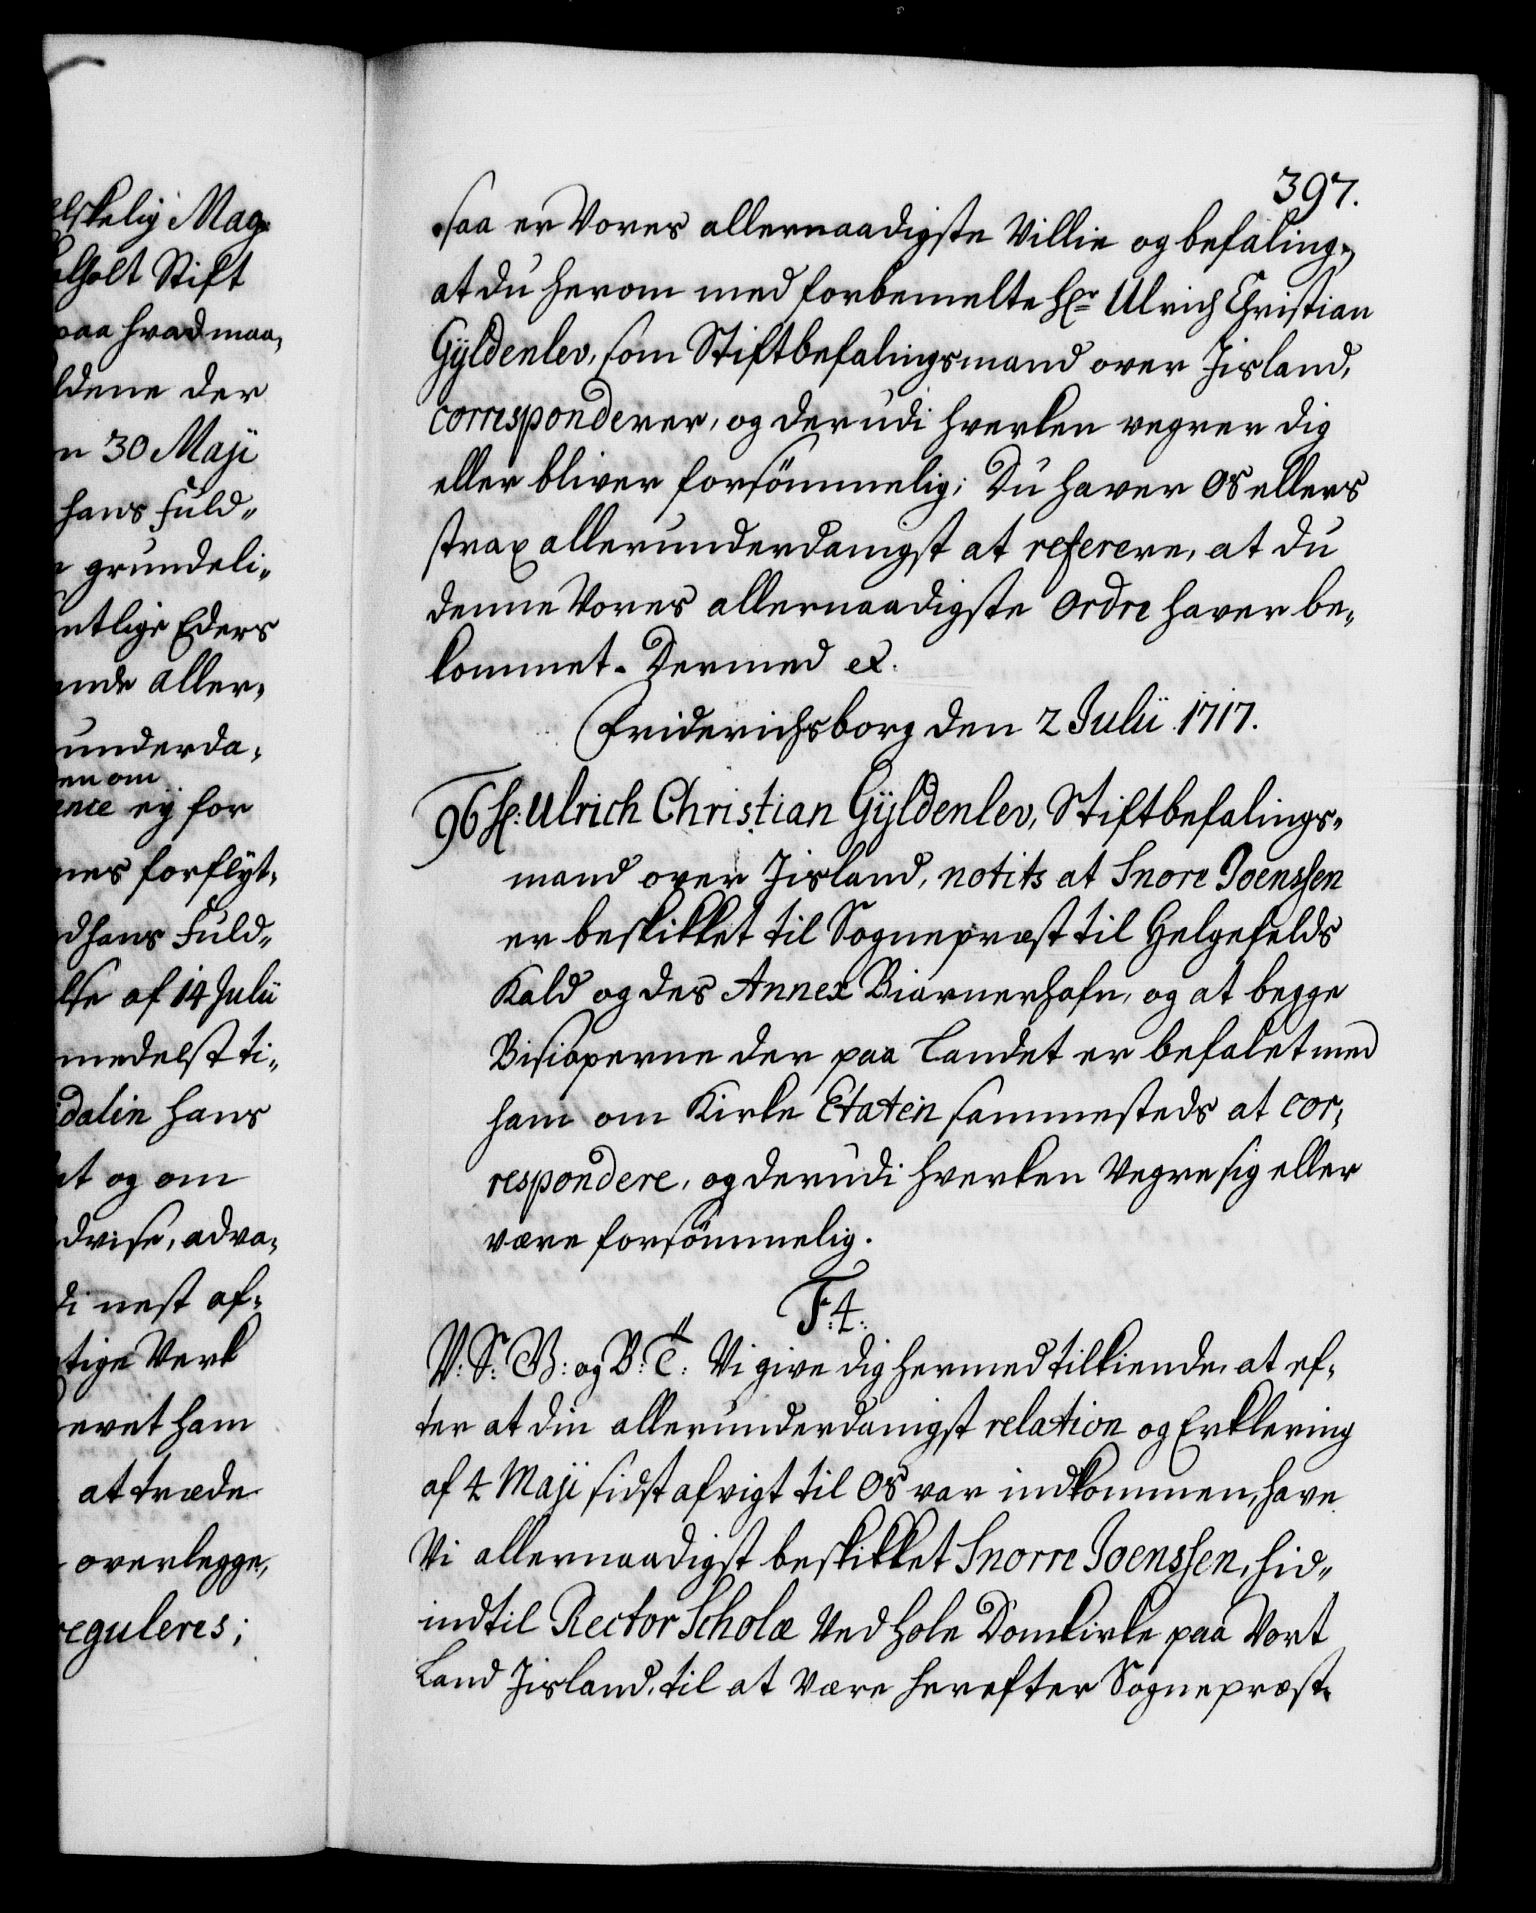 elskelig Mag=
alholt Stift
paa hvad maa,
ldene der
n 30 Maji
hans Fuld=
grundeli=
ntlige Eders
ende aller,
underda,
en om
ence ey for
nes forflyt,
d hans Fuld=
lse af 14 Julii
medelst ti,
dalin hans
et og om
dvise, adva,
di nest ef,
tige Verk
evet ham
at træde
overlegge,
reguleres;
397.
saa er Vores allernaadigste Villie og befaling,
at du herom med forbemelte Hr Ulrich Christian
Gyldenlev, som Stiftbefalingsmand over Jisland,
corresponderer, og derudi hverken vegrer dig
eller bliver forsömmelig; Du haver Os ellers
strax allerunderdanigst at referere, at du
denne Vores allernaadigste Ordre haver be,
kommet. Dermed ex.
Friderichsborg den 2 Julii 1717.
96 H: Ulrich Christian Gyldenlev, Stiftbefalings,
mand over Jisland, notits at Snore Joenssen
er beskikket til Sognepræst til Helgefelds
Kald og des Annex Biarnerhafn, og at begge
Bisioperne der paa Landet er befalet med
ham om Kirke Etaten sammesteds at cor,
respondere, og derudi hverken Vegre sig eller
være forsömmelig.
F: 4.
V: S: G: og B: T: Vi give dig hermed tilkiende, at ef,
ter at din allerunderdanigst relation og Erklering
af 4 Maji sidst afvigt til Os var indkommen, have
Vi allernaadigst beskikket Snorre Joenssen, hid=
indtil Rector Scholæ Ved Hole Domkirke paa Vort
Land Jisland, til at Være herefter Sognepræst